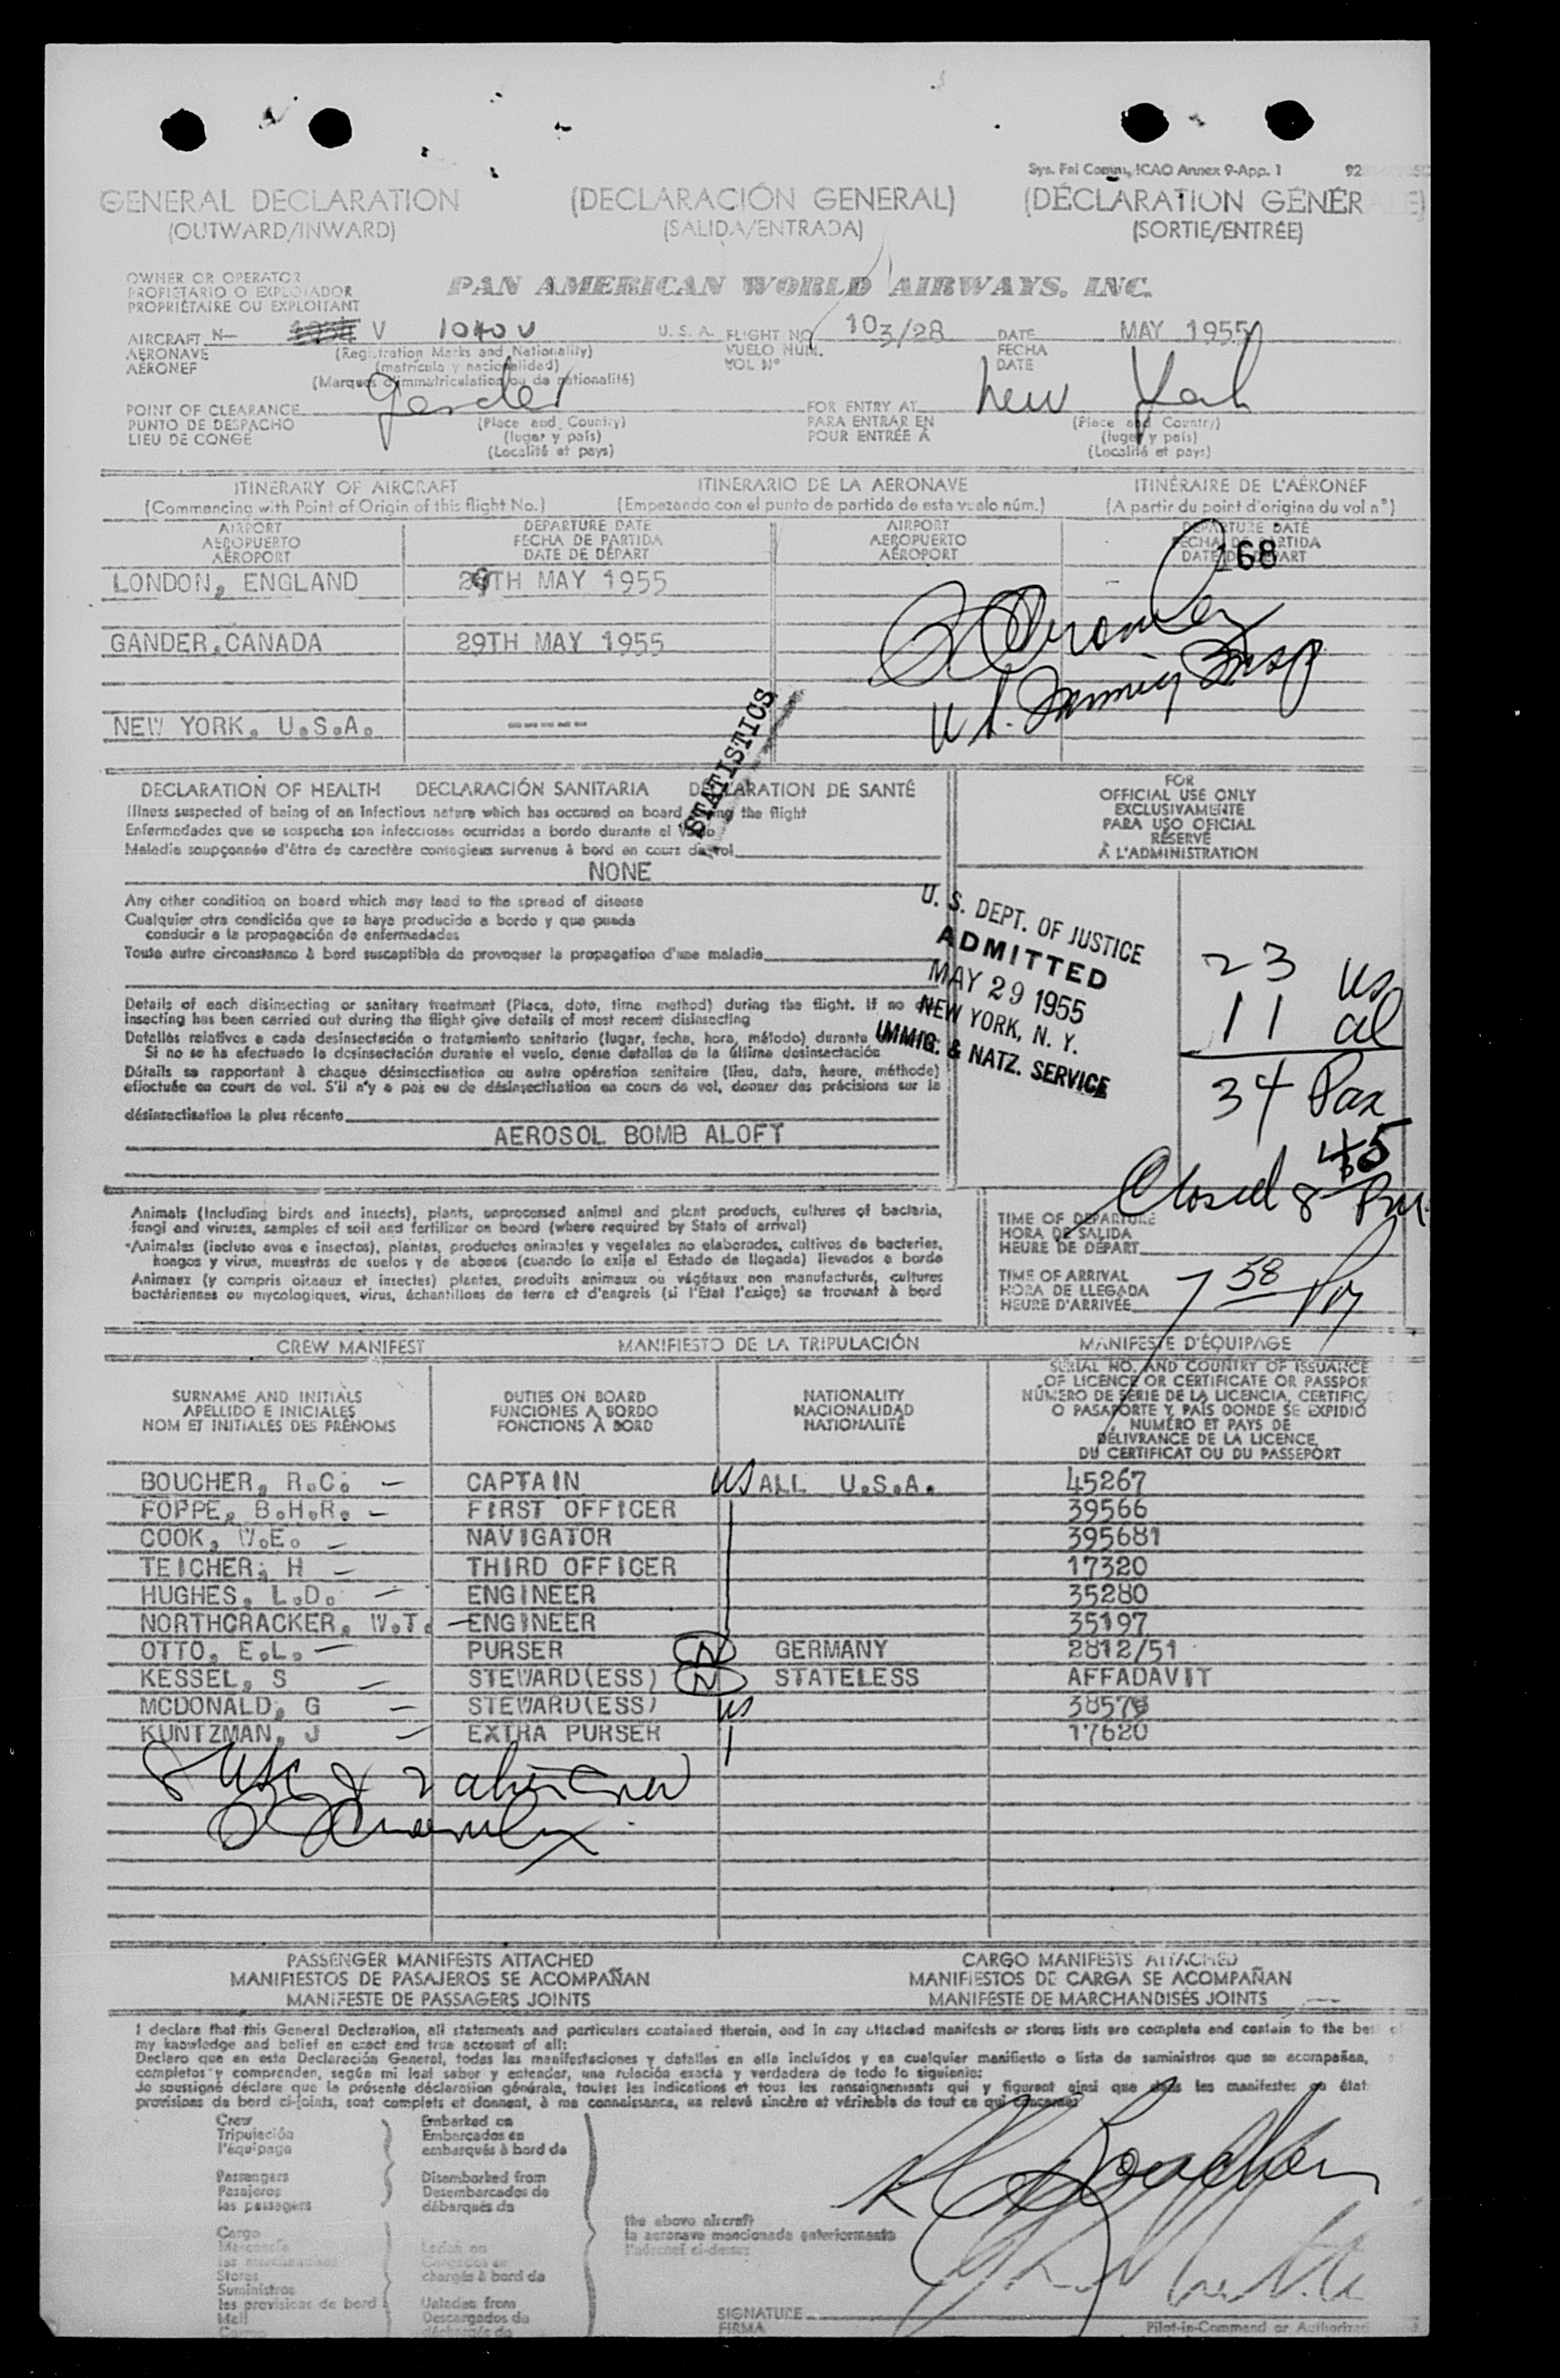 Sys. Fal Comm, ICAO Annex 9-App. 1 92
GENERAL DECLARATION (DECLARACIÓN GENERAL) (DÉCLARATION GÉNÉR
(OUTWARD/INWARD) (SALIDA/ENTRADA) (SORTIE/ENTRÉE)
OWNER OR OPERATOR
PROPIETARIO O EXPLOTADOR
PROPRIÉTAIRE OU EXPLOITANT
PAN AMERICAN WORLD AIRWAYS, INC.
AIRCRAFT N— V 1040V U. S. A. FLIGHT NO 103/28 DATE MAY 1955
AERONAVE (Registration Marks and Nationality) VUELO NÚM. FECHA
AÉRONEF (matrícula y nacionalidad) VOL Nº DATE
(Marques d'immatriculation ou de nationalité)
Gander New York
POINT OF CLEARANCE FOR ENTRY AT
PUNTO DE DESPACHO (Place and Country) PARA ENTRAR EN (Place and Country)
LIEU DE CONGÉ (lugar y país) POUR ENTRÉE À (lugar y país)
(Localité et pays) (Localité et pays)
ITINERARY OF AIRCRAFT ITINERARIO DE LA AERONAVE ITINÉRAIRE DE L'AÉRONEF
(Commencing with Point of Origin of this flight No.) (Empezando con el punto de partida de este vuelo núm.) (A partir du point d'origine du vol nº)
AIRPORT DEPARTURE DATE AIRPORT DEPARTURE DATE
AEROPUERTO FECHA DE PARTIDA AEROPUERTO FECHA DE PARTIDA
AÉROPORT DATE DE DÉPART AÉROPORT DATE DE DÉPART
168
LONDON, ENGLAND 29TH MAY 1955
GANDER, CANADA 29TH MAY 1955
U.S. Immig Insp
NEW YORK, U.S.A. -----
STATISTICS
DECLARATION OF HEALTH DECLARACIÓN SANITARIA DÉCLARATION DE SANTÉ
Illness suspected of being of an infectious nature which has occured on board during the flight
Enfermedades que se sospecha son infecciosas ocurridas a bordo durante el vuelo
Maladie soupçonnée d'être de caractère contagieux survenue à bord en cours de vol
NONE
FOR
OFFICIAL USE ONLY
EXCLUSIVAMENTE
PARA USO OFICIAL
RÉSERVÉ
À L'ADMINISTRATION
Any other condition on board which may lead to the spread of disease
Cualquier otra condición que se haya producido a bordo y que pueda
conducir a la propagación de enfermedades
Toute autre circonstance à bord susceptible de provoquer la propagation d'une maladie
U. S. DEPT. OF JUSTICE
ADMITTED
MAY 29 1955
NEW YORK, N. Y.
IMMIG. & NATZ. SERVICE
23 US
11 al
34 Pax
Closed 8 45 PM
Details of each disinsecting or sanitary treatment (Place, date, time method) during the flight. If no
insecting has been carried out during the flight give details of most recent disinsecting
Detalles relativos a cada desinsectación o tratamiento sanitario (lugar, fecha, hora, método) durante
Si no se ha efectuado la desinsectación durante el vuelo, dense detalles de la última desinsectación
Détails se rapportant à chaque désinsectisation ou autre opération sanitaire (lieu, date, heure, méthode)
effectuée en cours de vol. S'il n'y a pas eu de désinsectisation en cours de vol, donner des précisions sur la
désinsectisation la plus récente
AEROSOL BOMB ALOFT
Animals (Including birds and insects), plants, unprocessed animal and plant products, cultures of bacteria,
fungi and viruses, samples of soil and fertilizer on board (where required by State of arrival)
Animales (incluso aves e insectos), plantas, productos animales y vegetales no elaborados, cultivos de bacterias,
hongos y virus, muestras de suelos y de abonos (cuando lo exija el Estado de llegada) llevados a bordo
Animaux (y compris oiseaux et insectes) plantes, produits animaux ou végétaux non manufacturés, cultures
bactériennes ou mycologiques, virus, échantillons de terre et d'engrais (si l'État l'exige) se trouvant à bord
TIME OF DEPARTURE
HORA DE SALIDA
HEURE DE DÉPART
TIME OF ARRIVAL
HORA DE LLEGADA 7 58 PM
HEURE D'ARRIVÉE
CREW MANIFEST MANIFIESTO DE LA TRIPULACIÓN MANIFESTE D'ÉQUIPAGE
SURNAME AND INITIALS
APELLIDO E INICIALES
NOM ET INITIALES DES PRÉNOMS
DUTIES ON BOARD
FUNCIONES A BORDO
FONCTIONS À BORD
NATIONALITY
NACIONALIDAD
NATIONALITÉ
SERIAL NO. AND COUNTRY OF ISSUANCE
OF LICENCE OR CERTIFICATE OR PASSPOR
NÚMERO DE SERIE DE LA LICENCIA, CERTIFIC
O PASAPORTE Y PAÍS DONDE SE EXPIDIÓ
NUMÉRO ET PAYS DE
DÉLIVRANCE DE LA LICENCE,
DU CERTIFICAT OU DU PASSEPORT
BOUCHER, R.C. — CAPTAIN US ALL U.S.A. 45267
FOPPE, B.H.R. — FIRST OFFICER 39566
COOK, W.E. — NAVIGATOR 395681
TEICHER, H — THIRD OFFICER 17320
HUGHES, L.D. — ENGINEER 35280
NORTHCRACKER, W.T. — ENGINEER 35197
OTTO, E.L. — PURSER N GERMANY 2812/51
KESSEL, S — STEWARD(ESS) N STATELESS AFFADAVIT
MCDONALD, G — STEWARD(ESS) US 38578
KUNTZMAN, J — EXTRA PURSER 17620
8 USC & 2 alien crew
PASSENGER MANIFESTS ATTACHED CARGO MANIFESTS ATTACHED
MANIFIESTOS DE PASAJEROS SE ACOMPAÑAN MANIFIESTOS DE CARGA SE ACOMPAÑAN
MANIFESTE DE PASSAGERS JOINTS MANIFESTE DE MARCHANDISES JOINTS
I declare that this General Declaration, all statements and particulars contained therein, and in any attached manifests or stores lists are complete and contain to the best of
my knowledge and belief an exact and true account of all:
Declaro que en esta Declaración General, todas las manifestaciones y detalles en ella incluídos y en cualquier manifiesto o lista de suministros que se acompañan,
completos y comprenden, según mi leal saber y entender, una relación exacta y verdadera de todo lo siguiente:
Je soussigné déclare que la présente déclaration générale, toutes les indications et tous les renseignements qui y figurent ainsi que dans les manifestes ou état
provisions de bord ci-joints, sont complets et donnent, à ma connaissance, un relevé sincère et véritable de tout ce qui concerne:
Crew Embarked on
Tripulación Embarcados en
l'équipage embarqués à bord de
Passengers Disembarked from
Pasajeros Desembarcados de
les passagers débarqués de
the above aircraft
la aeronave mencionada anteriormente
l'aéronef ci-dessus
Cargo
Mercancía Laden on
les marchandises Cargados en
Stores chargés à bord de
Suministros
les provisions de bord Unladen from
Mail Descargados de
Correo déchargés de
SIGNATURE
FIRMA Pilot-in-Command or Authorized